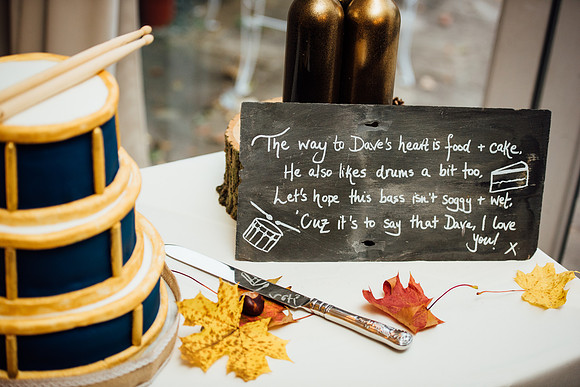 The way to Dave's heart is food + cake,
He also likes drums a bit too,
Let's hope this bass isn't soggy + wet,
'Cuz it's to say that Dave, I love
you! x